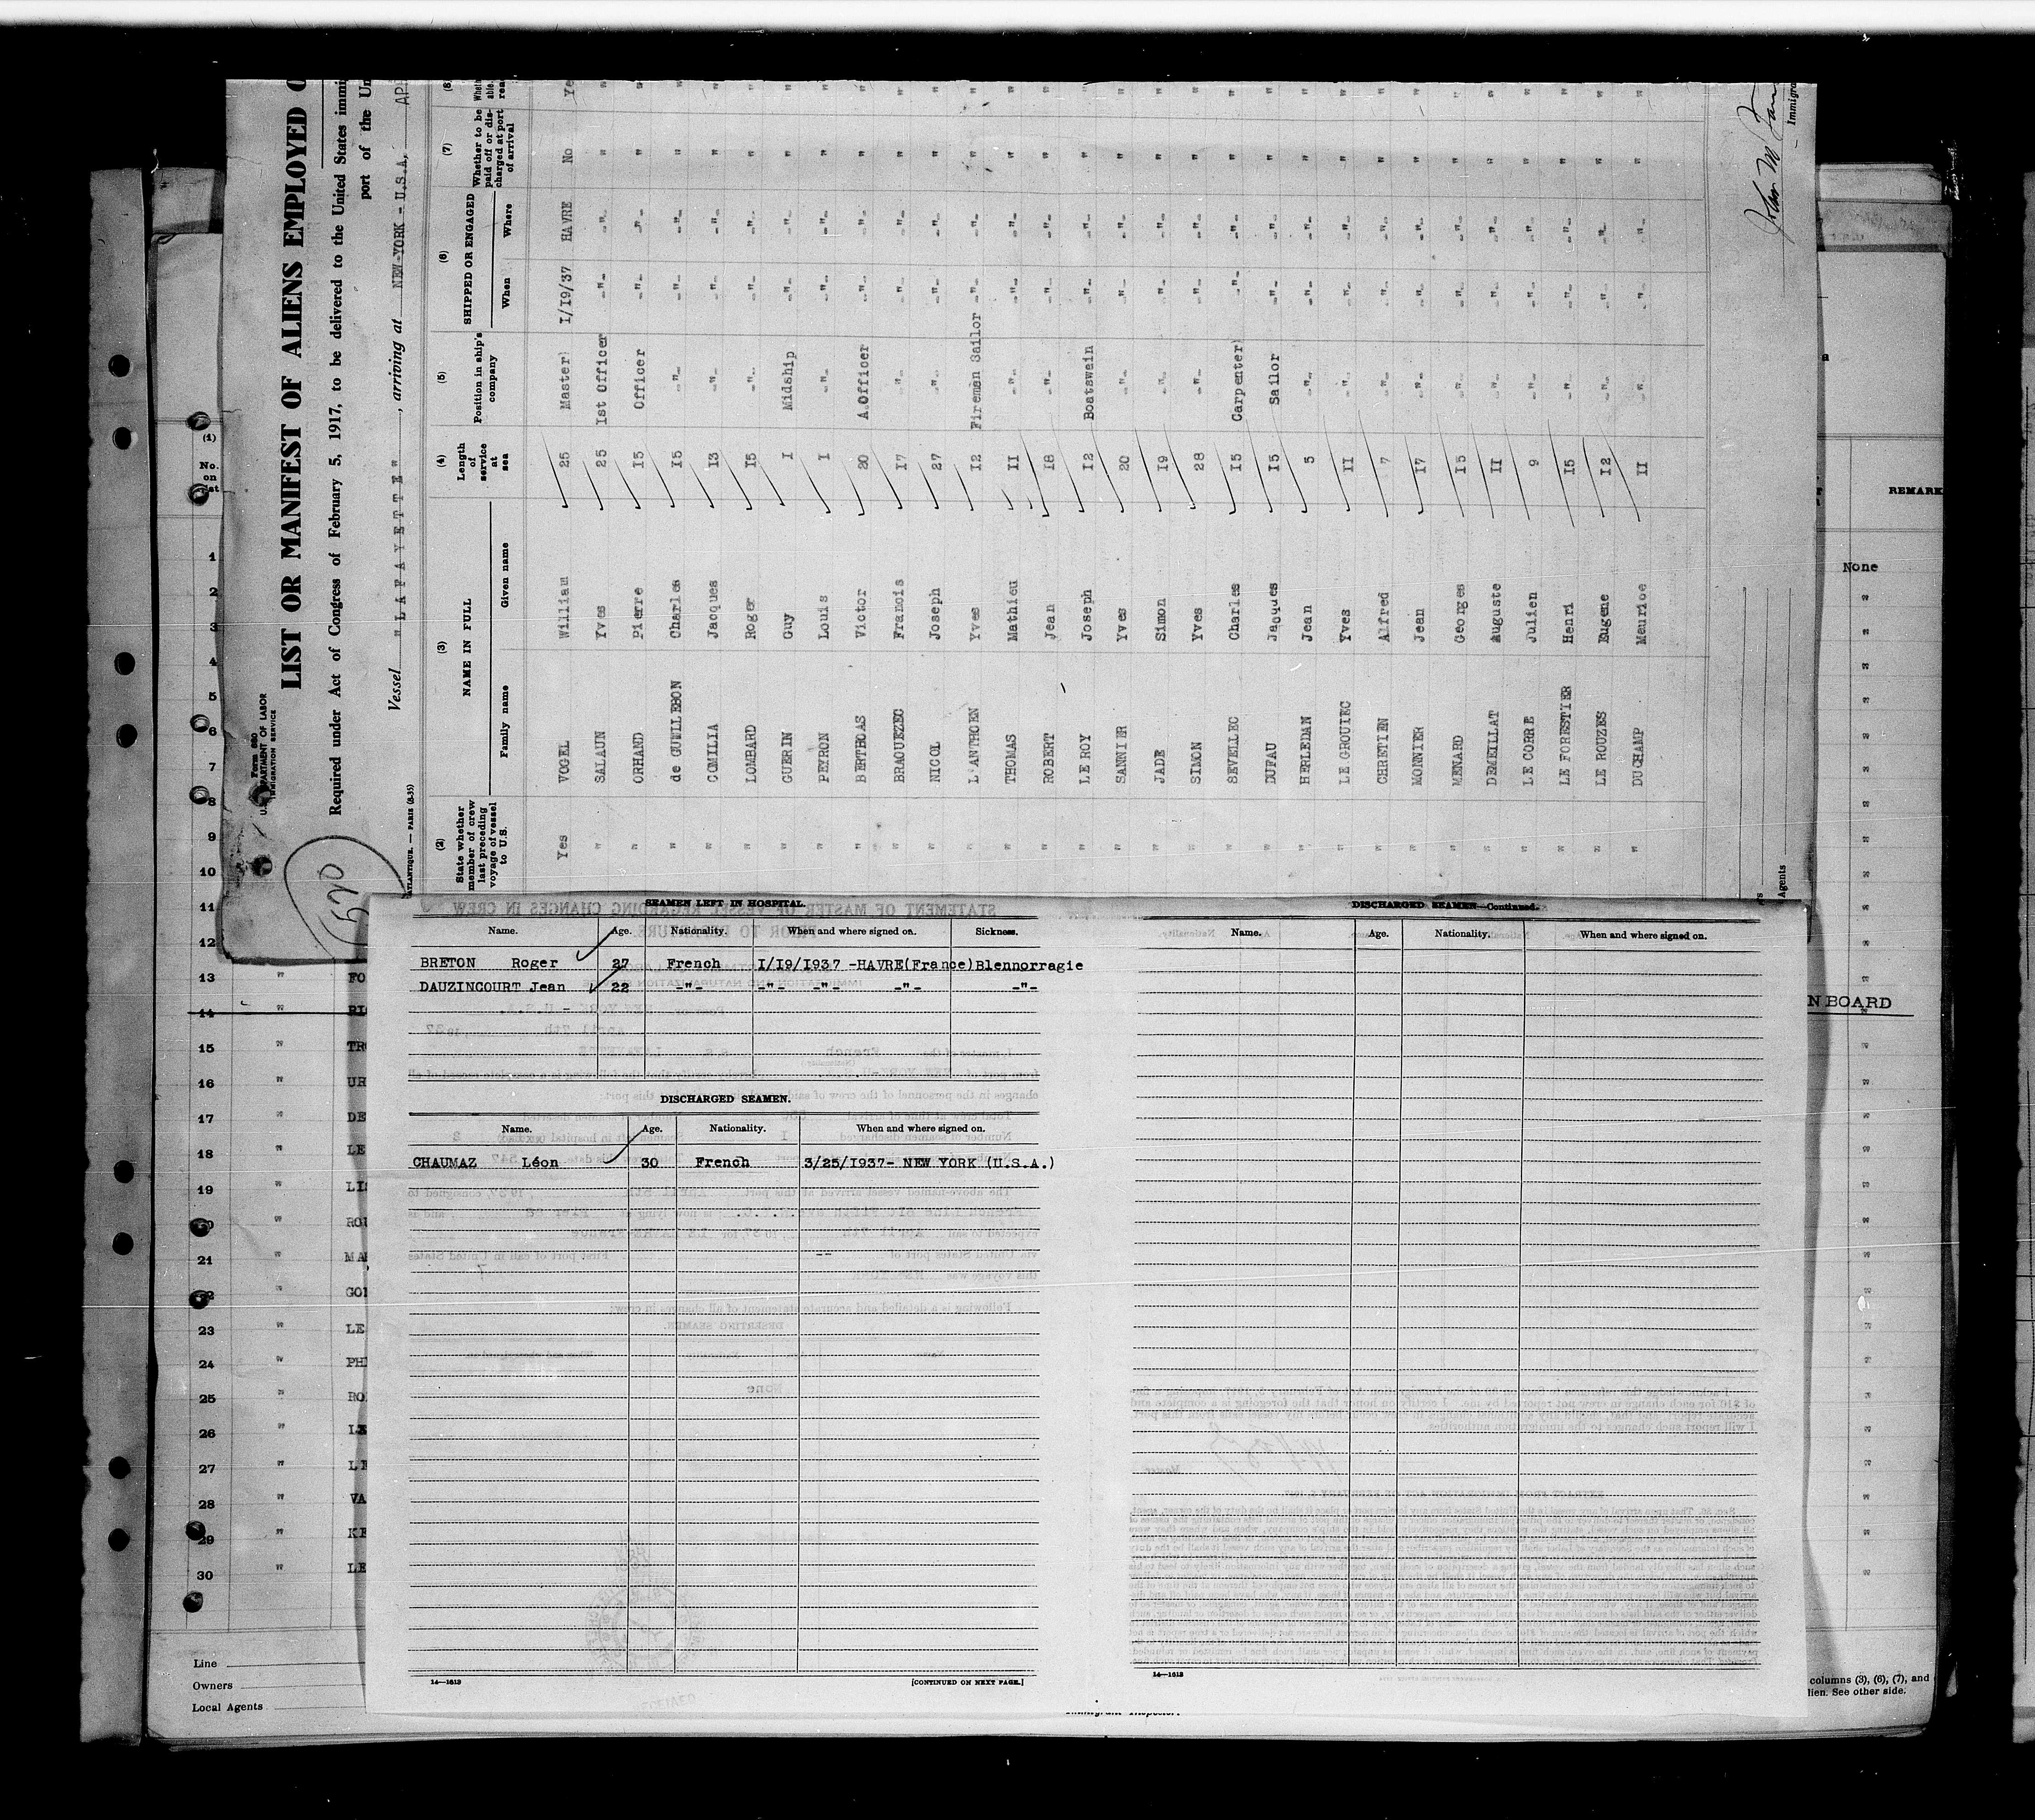 LIST OR MANIFEST OF ALIENS EMPLOYED O
Required under Act of Congress of February 5, 1917, to be delivered to the United States immi
port of the Un
Vessel "LAFAYETTE", arriving at NEW-YORK - U.S.A.
Form 680
U.S. DEPARTMENT OF LABOR
IMMIGRATION SERVICE
ATLANTIQUE. — PARIS (8-35)
(2) State whether member of crew last preceding voyage of vessel to U.S.
(3) NAME IN FULL
Family name Given name
(4) Length of service at sea
(5) Position in ship's company
(6) SHIPPED OR ENGAGED
When Where
(7) Whether to be paid off or discharged at port of arrival
Yes VOGEL William 25 Master I/I9/37 HAVRE No Ye
" SALAUN Yves 25 Ist Officer -"- -"- " "
" ORHAND Pierre I5 Officer -"- -"- " "
" de GUILLEBON Charles I5 -"- -"- -"- " "
" COMILIA Jacques I3 -"- -"- -"- " "
" LOMBARD Roger I5 -"- -"- -"- " "
" GUERIN Guy I Midship -"- -"- " "
" PEYRON Louis I -"- -"- -"- " "
" BERTHOAS Victor 20 A.Officer -"- -"- " "
" BRAOUEZEC Franois I7 -"- -"- -"- " "
" NICOL Joseph 27 -"- -"- -"- " "
" L'ANTHOEN Yves I2 Fireman Sailor -"- -"- " "
" THOMAS Mathieu II -"- -"- -"- " "
" ROBERT Jean I8 -"- -"- -"- " "
" LE ROY Joseph I2 Boatswain -"- -"- " "
" SANNIER Yves 20 -"- -"- -"- " "
" JADE Simon I9 -"- -"- -"- " "
" SIMON Yves 28 -"- -"- -"- " "
" SEVELLEC Charles I5 Carpenter -"- -"- " "
" DUFAU Jacques I5 Sailor -"- -"- " "
" HERLEDAN Jean 5 -"- -"- -"- " "
" LE GROUIEC Yves II -"- -"- -"- " "
" CHRETIEN Alfred 7 -"- -"- -"- " "
" MONNIER Jean I7 -"- -"- -"- " "
" MENARD Georges I5 -"- -"- -"- " "
" DEMEILLAT Auguste II -"- -"- -"- " "
" LE CORRE Julien 9 -"- -"- -"- " "
" LE FORESTIER Henri I5 -"- -"- -"- " "
" LE ROUZES Eugene I2 -"- -"- -"- " "
" DUCHAMP Maurice II -"- -"- -"- " "
Immigra
Agents
SEAMEN LEFT IN HOSPITAL.
Name. Age. Nationality. When and where signed on. Sickness.
BRETON Roger 27 French I/I9/I937 -HAVRE(France)Blennorragie
DAUZINCOURT Jean 22 -"- -"- -"- -"- -"-
DISCHARGED SEAMEN.
Name. Age. Nationality. When and where signed on.
CHAUMAZ Léon 30 French 3/25/I937- NEW YORK (U.S.A.)
14—1613
[CONTINUED ON NEXT PAGE.]
DISCHARGED SEAMEN—Continued.
Name. Age. Nationality. When and where signed on.
14—1613
(1)
No. on
1
2
3
4
5
6
7
8
9
10
11
12
13 " FO
14 " RI
15 " TR
16 " UR
17 " DE
18 " LE
19 " LI
" ROU
21 " MA
" GO
23 " LE
24 " PH
25 " RO
26 " LE
27 " LE
28 " VA
29 " KE
30 " LE
REMARK
None
N BOARD
Line
Owners
Local Agents
Immigrant Inspector.
columns (3), (6), (7), and
lien. See other side.